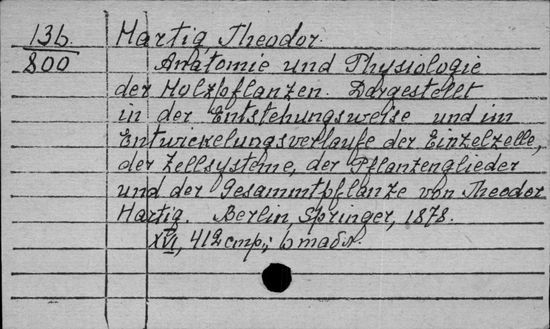 136.
800
Hartig Theodor.
Anatomie und Physiologie
der Holzpflanzen. Dargestellt
in der Entstehungsweise und im
Entwickelungsverlaufe der Einzelzelle,
der Zellsysteme, der Pflanzenglieder
und der Gesammtpflanze von Theodor
Hartig. Berlin, Springer, 1878.
XVI, 412 стр.; 6 табл.